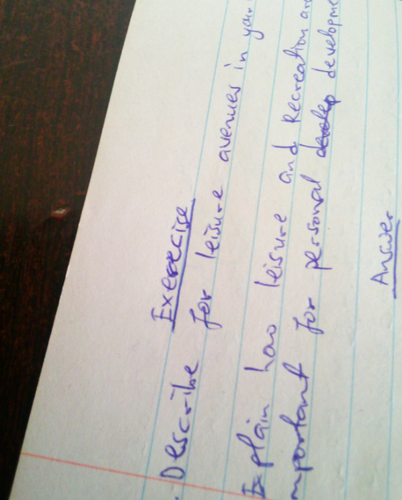 Exerecise
. Describe for leisure avenues in your
Explain how leisure and Recreation are
mportant for personal develop developme
Answer